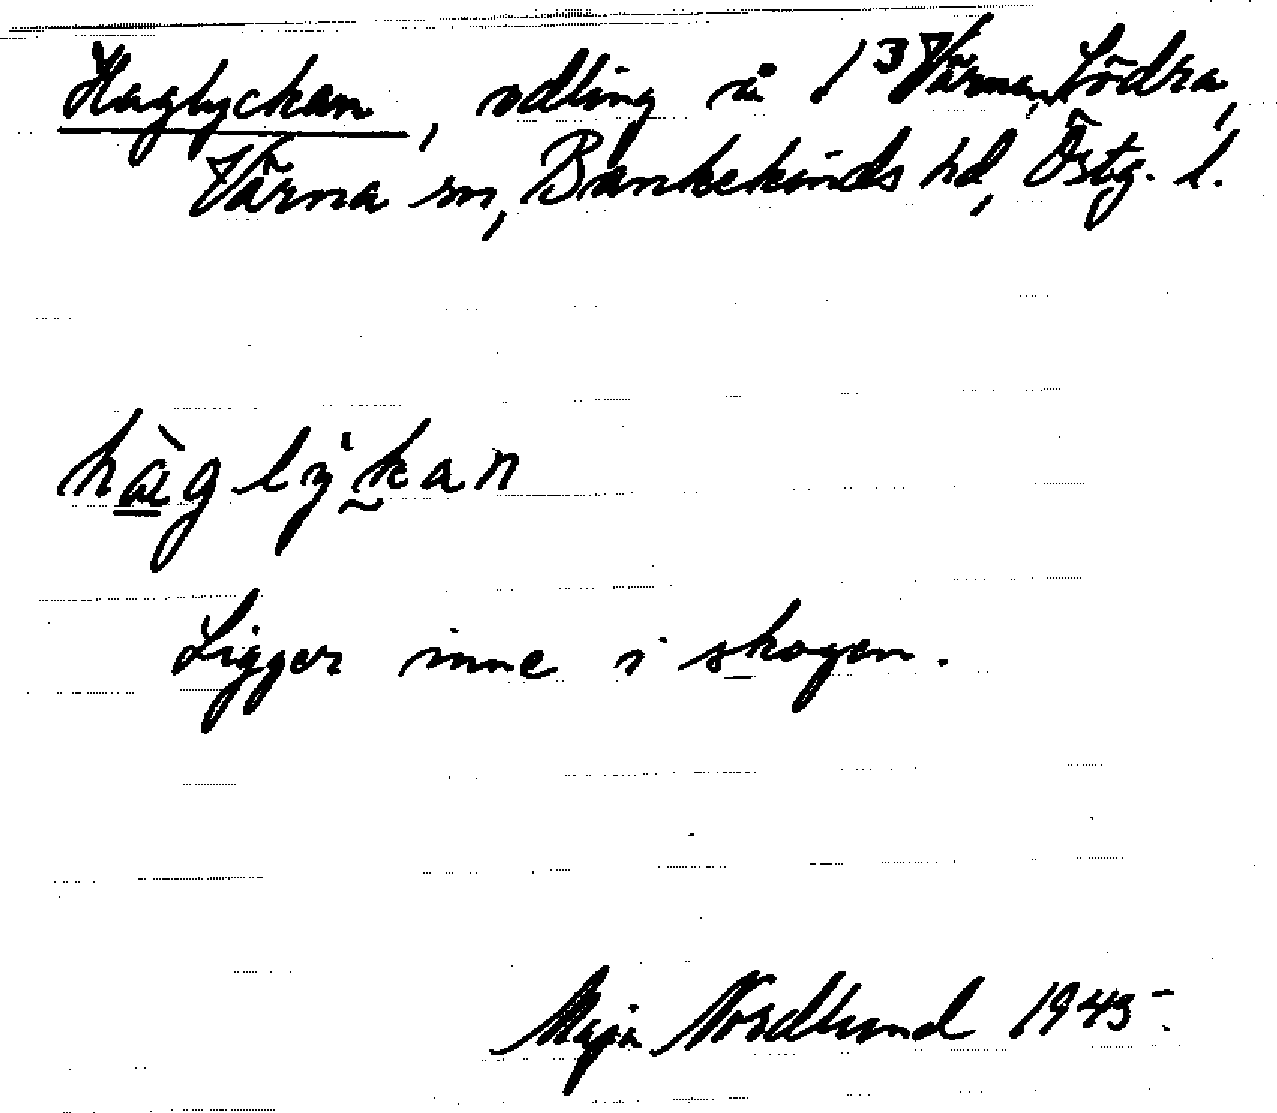 Haglyckan, odling å 1³ Värna, Södra,
Värna sn, Bankekinds hd, Östg. l.
hàglỳkan
Ligger inne i skogen.
Maja Nordlund 1945